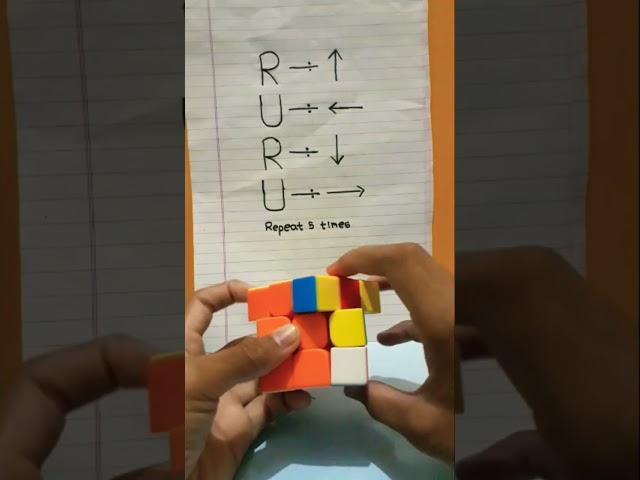 R ÷ ↑
U ÷ ←
R ÷ ↓
U ÷ →
Repeat 5 times